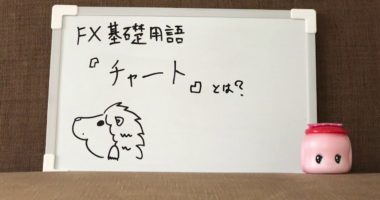 FX基礎用語
『チャート』とは?